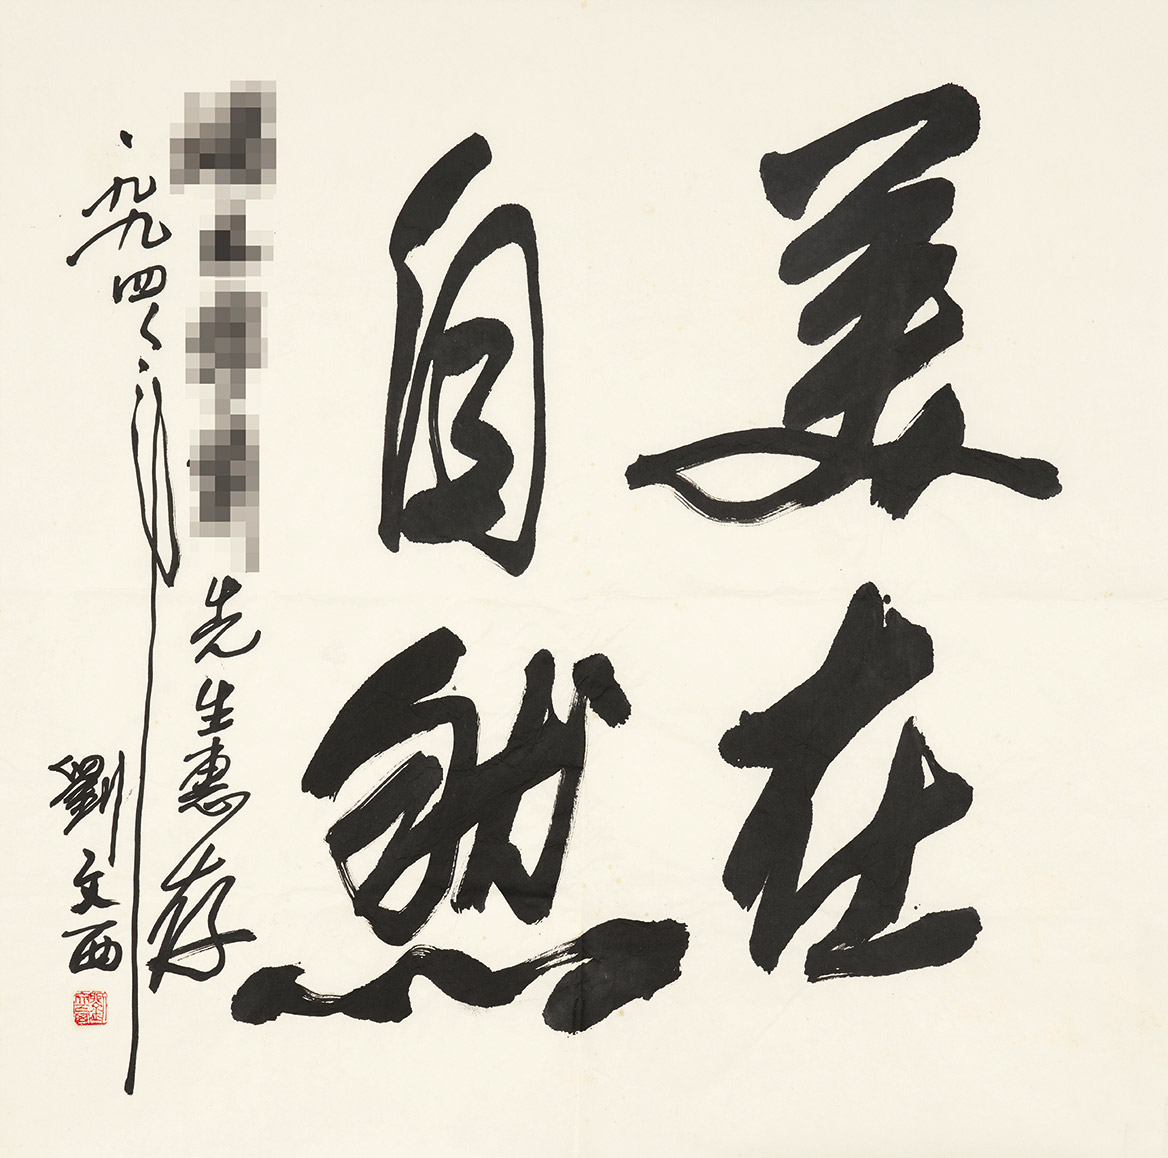 美在
自然
先生惠存
一九九四年二月
劉文西